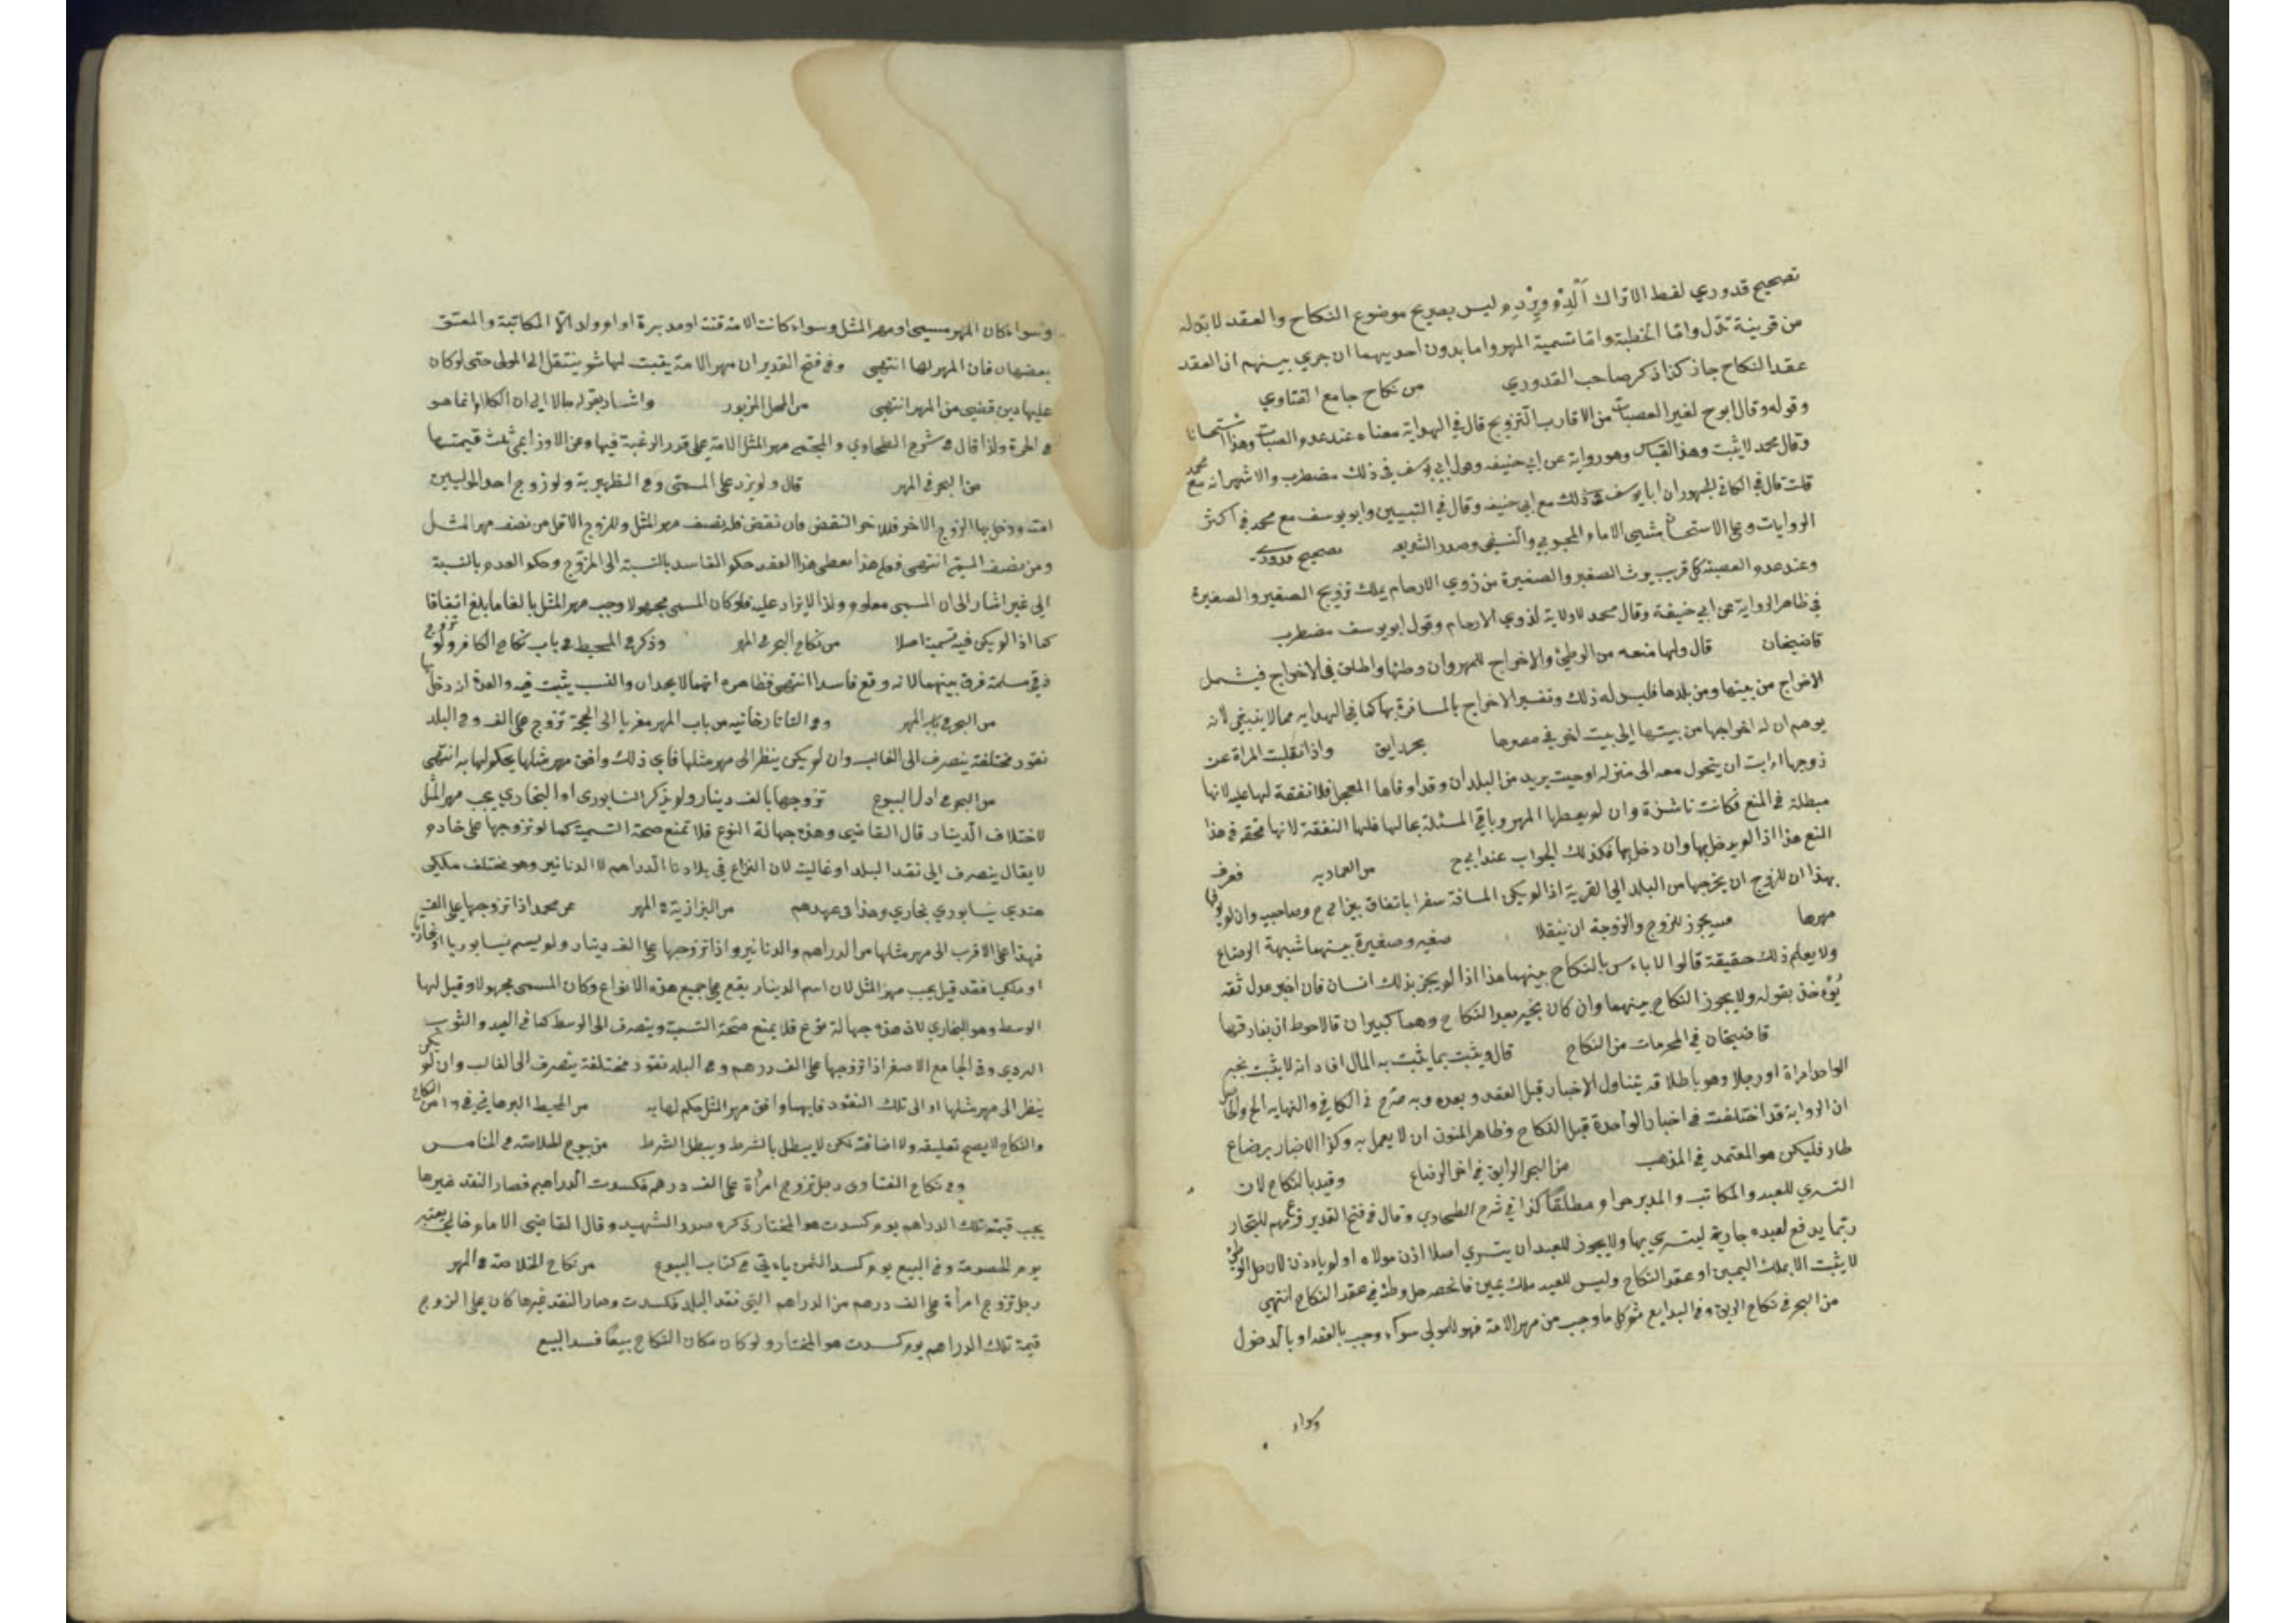 تصحيح قدوري لفظ الاتراك ليس بصريح موضوع النكاح والعقد لا بد له
من قرينة تدل واما الخطبة واما تسمية المهر واما بدون احديهما ان جري بينهم ان العقد
عقد النكاح جاز كذا ذكر صاحب القدوري من نكاح جامع الفتاوي
وقوله وقال ابو ح لغير العصبات من الاقارب التزويج قال في الهداية معناه عند عدم العصبات وهذا استحسانا
وقال محمد لا يثبت وهذا القياس وهو رواية عن ابي حنيفه وقول ابي يوسف في ذلك مضطرب والاشهر انه مع محمد
قلت قال في الكافي الجمهور ان ابا يوسف في ذلك مع ابي حنيفه وقال في التبيين وابو يوسف مع محمد في اكثر
الروايات وعلى الاستحسان مشى الامام المحبوبي والنسفي وصدر الشريعه تصحيح قدوري
وعند عدم العصبة كل قريب يرث الصغير والصغيرة من ذوي الارحام يملك تزويج الصغير والصغيرة
في ظاهر الرواية عن ابي حنيفة وقال محمد لا ولاية لذوي الارحام وقول ابو يوسف مضطرب
قاضيخان قال ولها منعه من الوطئ والاخراج للمهر وان وطئها واطلق في الاخراج فيشمل
الاخراج من بيتها ومن بلدها فليس له ذلك وتفسير الاخراج بالمسافرة بها كما في الهدايه مما لا ينبغي لانه
يوهم ان له اخراجها من بيتها الى بيت اخر في مصرها بحر رايق واذا نقلت المراة عن
زوجها ابت ان يتحول معه الى منزله او حيث يريد من البلدان وقد اوفاها المعجل فلا نفقة لها عليه لانها
مبطلة في المنع فكانت ناشزة وان لم يعطها المهر وباقي المسئلة بحالها فلها النفقة لانها محقه في هذا
المنع هذا اذا لم يدخل بها وان دخل بها فكذلك الجواب عند ابي ح من العماديه فعرف
بهذا ان للزوج ان يخرجها من البلد الى القرية اذا لم يكن المسافة سفرا باتفاق بين ابي ح وصاحبيه وان لم يوفها
مهرها يجوز للزوج والزوجة ان ينتقلا صغير وصغيرة بينهما شبهة الرضاع
ولا يعلم ذلك حقيقة قالوا لا باءس بالنكاح بينهما هذا اذا لم يخبر بذلك انسان فان اخبر عدل ثقه
يؤخذ بقوله ولا يجوز النكاح بينهما وان كان بخبر بعد النكاح وهما كبيران فالاحوط ان يفارقها
قاضيخان في المحرمات من النكاح قال ويثبت بما يثبت به المال افاد انه لا يثبت بخبر
الواحد امراة او رجلا وهو باطلاقه يتناول الاخبار قبل العقد وبعده وبه صرح في الكافي والنهايه الخ والحاصل
ان الرواية قد اختلفت في اخبار الواحدة قبل النكاح وظاهر المتون ان لا يعمل به وكذا الاخبار برضاع
طار فليكن هو المعتمد في المذهب من البحر الرايق في اخر الرضاع وقيد بالنكاح لان
التسري للعبد والمكاتب والمدبر حرام مطلقا كذا في شرح الطحاوي وقال في فتح القدير للتجار
ربما يدفع لعبده جارية ليتسري بها ولا يجوز للعبد ان يتسري اصلا اذن مولاه او لم ياذن لان حل الوطئ
لا يثبت الا بملك اليمين او عقد النكاح وليس للعبد ملك يمين فانحصر حل وطئه في عقد النكاح انتهي
من البحر في نكاح الرقيق وفي البدايع ثم كل ما وجب من مهر الامة فهو للمولى سواء وجب بالعقد او بالدخول
وسواء
وسواء كان المهر مسمى او مهر المثل وسواء كانت الامة قنة او مدبرة او ام ولد الا المكاتبة والمعتق
بعضها فان المهر لها انتهى وفي فتح القدير ان مهر الامة يثبت لها ثم ينتقل الى المولى حتى لو كان
عليها دين قضي من المهر انتهى من المحل المزبور واشار بقوله مالا الى ان الكلام انما هو
في الحرة ولذا قال في شرح الطحاوي والمجتبى مهر المثل للامة على قدر الرغبة فيها وعن الاوزاعي ثلث قيمتها
من البحر في المهر قال ولم يزد على المسمى وفي الظهيرية ولو زوج احد الوليين
امته ودخل بها الزوج فللاخر النقض فان نقض فله نصف مهر المثل وللزوج الاقل من نصف مهر المثل
ومن نصف المسمى انتهى فعلى هذا يعطى هذا العقد حكم الفاسد بالنسبة الى المزوج وحكم العدم بالنسبة
الى غير اشار الى ان المسمى معلوم ولذا لا يزاد عليه فلو كان المسمى مجهولا وجب مهر المثل بالغا ما بلغ اتفاقا
كما اذا لم يكن فيه تسمية اصلا من نكاح البحر في المهر وذكر في المحيط في باب نكاح الكافر ولو تزوج
ذمي مسلمة فرق بينهما لانه وقع فاسدا انتهى فظاهره انهما لا يحدان والنسب يثبت فيه والعدة ان دخل بها
من البحر في باب المهر وفي التاتارخانيه من باب المهر معزيا الى الحجة تزوج على الف وفي البلد
نقود مختلفة ينصرف الى الغالب وان لم يكن ينظر الى مهر مثلها فاي ذلك وافق مهر مثلها يحكم لها به انتهى
من البحر في اول البيوع تزوجها بالف دينار ولم يذكر النسابوري او البخاري يجب مهر المثل
لاختلاف الدينار قال القاضي وهذه جهالة النوع فلا تمنع صحة التسمية كما لو تزوجها على خادم
لا يقال ينصرف الى نقد البلد او غالبه لان النزاع في بلادنا الدراهم لا الدنانير وهو مختلف ملكي
هندي نيسابوري بخاري وهذا في عهدهم من البزازية في المهر عن محمد اذا تزوجها على الف
فهذا على الاقرب الى مهر مثلها من الدراهم والدنانير واذا تزوجها على الف دينار ولم يسم نيسابوريا او بخاريا
او ملكيا فقد قيل يجب مهر المثل لان اسم الدينار يقع على جميع هذه الانواع وكان المسمى مجهولا وقيل لها
الوسط وهو البخاري لان هذه جهالة نوع فلا يمنع صحة التسمية وينصرف الى الوسط كما في العبد والثوب
الهروي وفي الجامع الاصغر اذا تزوجها على الف درهم وفي البلد نقود مختلفة ينصرف الى الغالب وان لم يكن
ينظر الى مهر مثلها او الى تلك النقود فايها وافق مهر المثل حكم لها به من المحيط البرهاني في ١٦ من النكاح
والنكاح لا يصح تعليقه ولا اضافته لكن لا يبطل بالشرط ويبطل الشرط من بيوع الخلاصة في الخامس
وفي نكاح الفتاوى رجل تزوج امرأة على الف درهم فكسدت الدراهم فصار النقد غيرها
يجب قيمة تلك الدراهم يوم كسدت هو المختار ذكره صدر الشهيد وقال القاضي الامام خالي يعتبر
يوم الخصومة وفي البيع يوم كسد الثمن ياءتي في كتاب البيوع من نكاح الخلاصة في المهر
رجل تزوج امرأة على الف درهم من الدراهم التي نقد البلد فكسدت وصار النقد غيرها كان على الزوج
قيمة تلك الدراهم يوم كسدت هو المختار ولو كان مكان النكاح بيعا فسد البيع